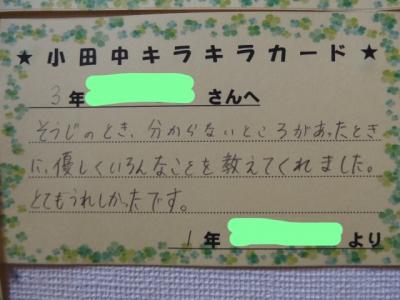 ★小田中キラキラカード★
3年 さんへ
そうじのとき、分からないところがあったとき
に、優しくいろんなことを教えてくれました。
とてもうれしかったです。
1年 より